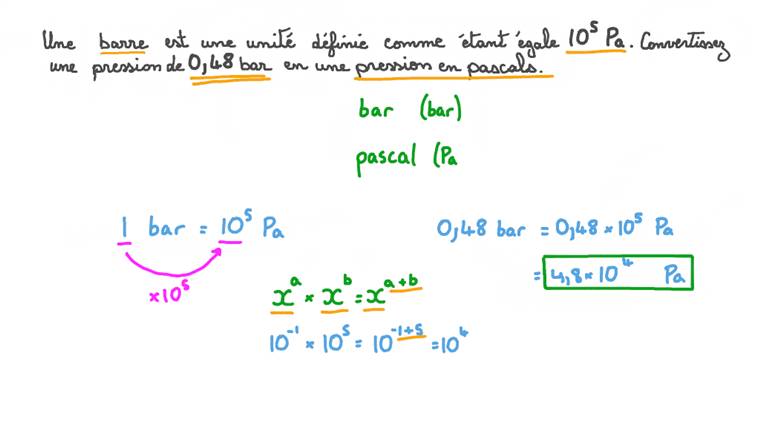 Une barre est une unité définie comme étant égale 10⁵ Pa. Convertissez
une pression de 0,48 bar en une pression en pascals.
bar (bar)
pascal (Pa
1 bar = 10⁵ Pa
×10⁵
0,48 bar = 0,48 × 10⁵ Pa
= 4,8 × 10⁴ Pa
xᵃ × xᵇ = xᵃ⁺ᵇ
10⁻¹ × 10⁵ = 10⁻¹⁺⁵ = 10⁴